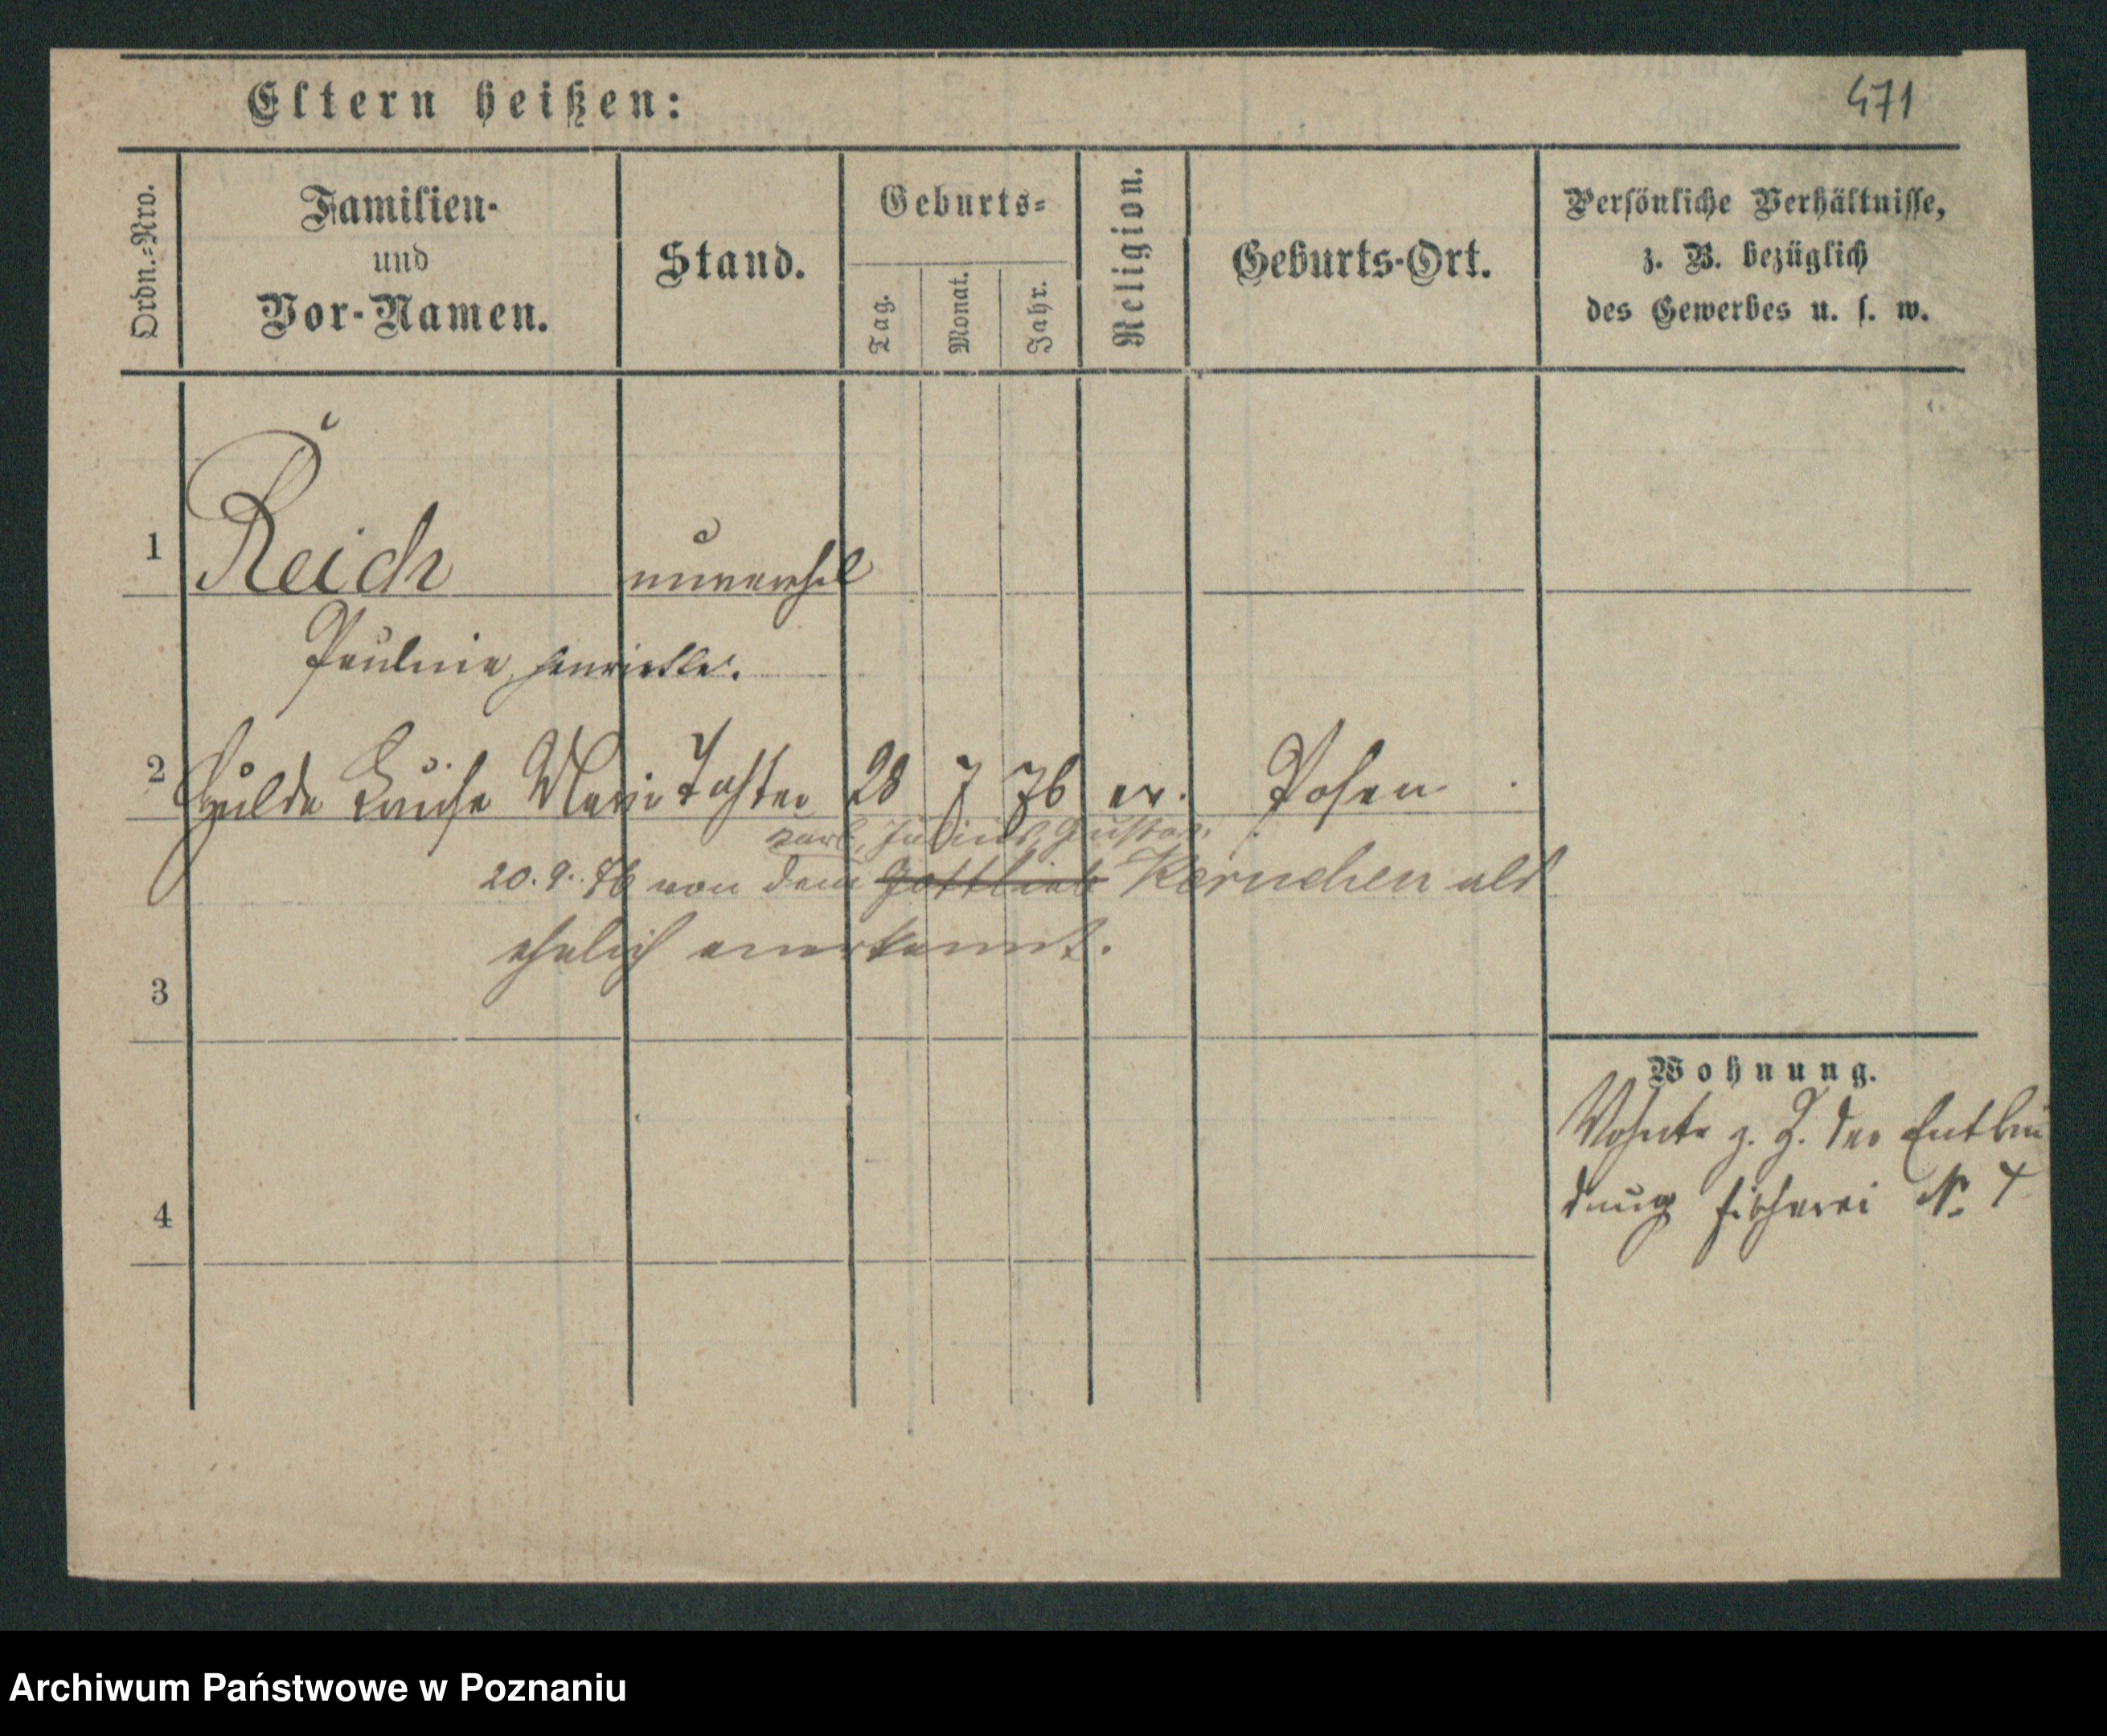 Eltern heißen:
471
Ordn.-Nro.
Familien-
und
Vor-Namen.
Stand.
Geburts-
Tag.
Monat.
Jahr.
Religion.
Geburts-Ort.
Persönliche Verhältnisse,
z. B. bezüglich
des Gewerbes u. s. w.
1 Reich unverehel
Pauline Henriette.
2 Hulda Louise Marie Tochter 28 7 76 ev. Posen
Karl, Julius, Gustav
20.9.76 von dem Gottlieb Kernchen als
ehelich anerkannt.
3
Wohnung.
Wohnte z. Z. der Entbin
dung Fischerei No
4
Archiwum Państwowe w Poznaniu